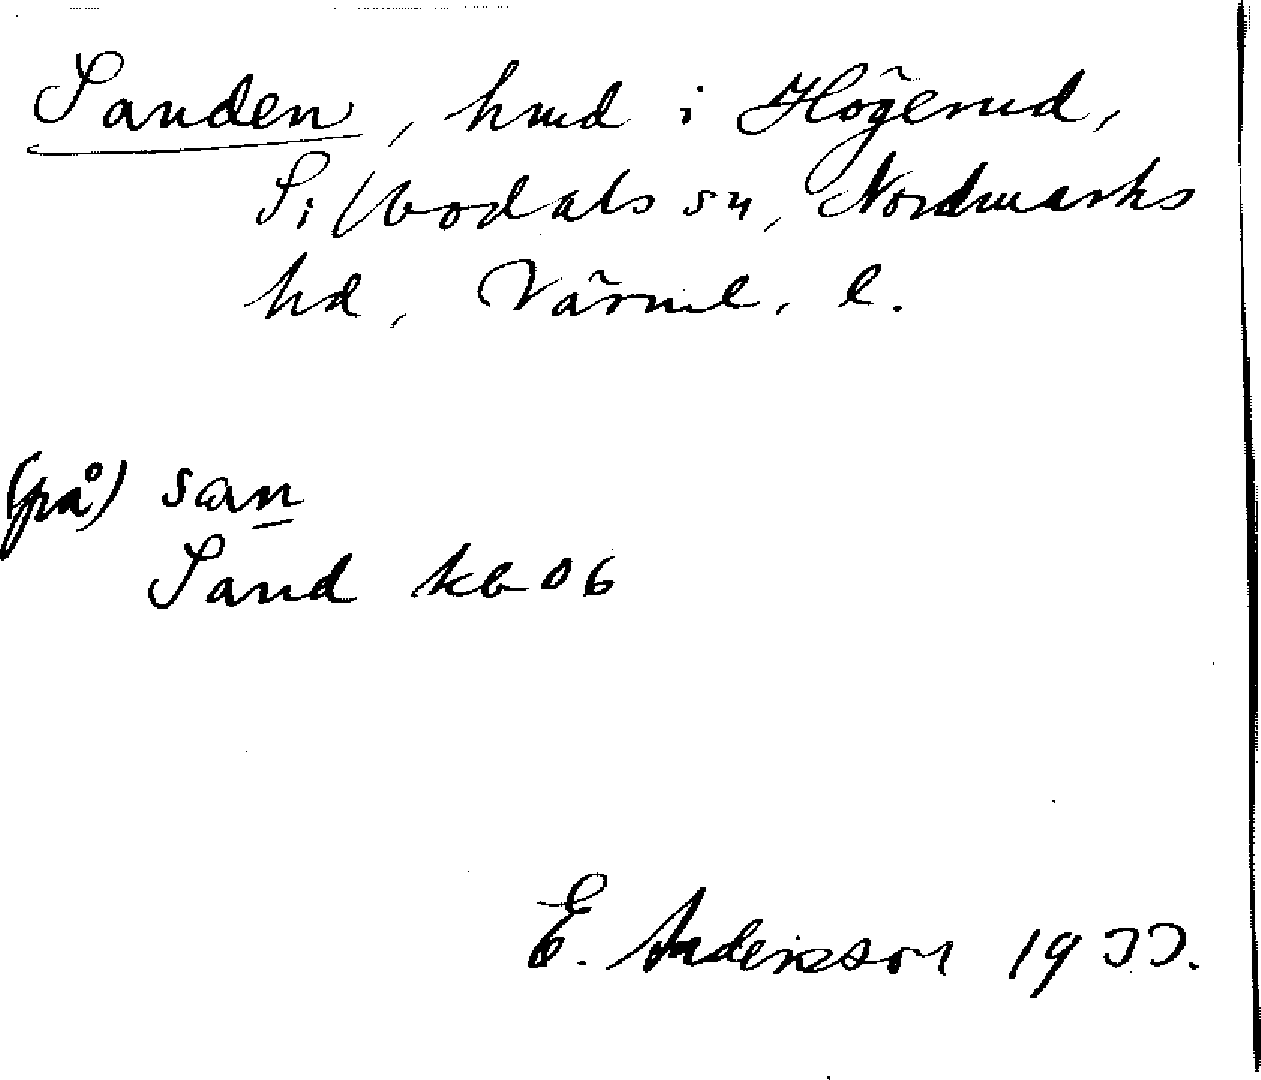 Sanden, hmd i Högerud,
Silbodals sn, Nordmarks
hd, Värml. l.
(på) san
Sand kb 06
E. Andersson 1933.